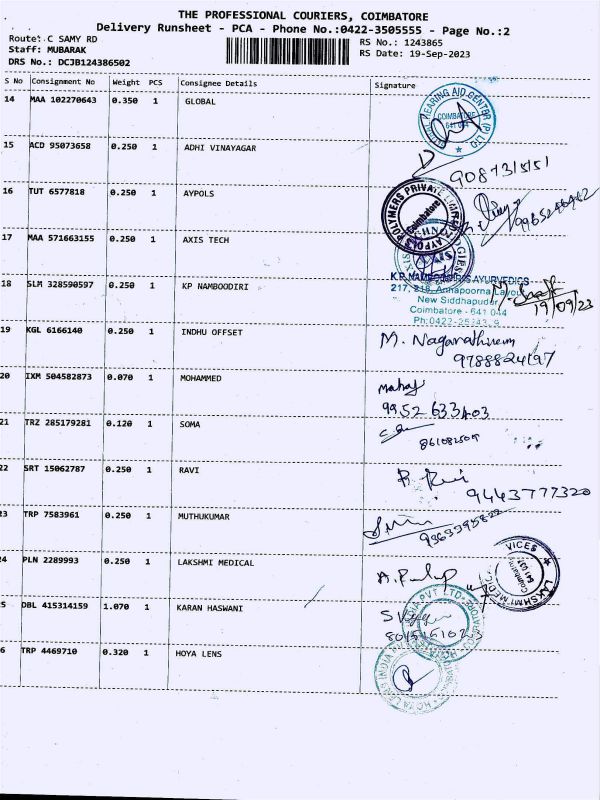 THE PROFESSIONAL COURIERS, COIMBATORE
Delivery Runsheet - PCA - Phone No.:0422-3505555 - Page No.:2
Route: C SAMY RD
Staff: MUBARAK
DRS No.: DCJB124386502
RS No.: 1243865
RS Date: 19-Sep-2023
S No Consignment No Weight PCS Consignee Details Signature
14 MAA 102270643 0.350 1 GLOBAL
HEARING AID CENTER (P) LTD
COIMBATORE
641 044
15 ACD 95073658 0.250 1 ADHI VINAYAGAR
16 TUT 6577818 0.250 1 AYPOLS
AYPOLS POLYMERS PRIVATE LIMITED
Coimbatore
17 MAA 571663155 0.250 1 AXIS TECH
18 SLM 328590597 0.250 1 KP NAMBOODIRI
K.P. NAMBOODIRI'S AYURVEDICS
217, 218, Annapoorna Layout
New Siddhapudur
Coimbatore - 641 044
19/09/23
19 KGL 6166140 0.250 1 INDHU OFFSET
M. Nagarathinam
20 IXM 504582873 0.070 1 MOHAMMED
9952 633403
21 TRZ 285179281 0.120 1 SOMA
22 SRT 15062787 0.250 1 RAVI
R. Ravi
9443777320
23 TRP 7583961 0.250 1 MUTHUKUMAR
24 PLN 2289993 0.250 1 LAKSHMI MEDICAL
LAKSHMI MEDICAL
VICES
Coimbatore
641 037
25 DBL 415314159 1.070 1 KARAN HASWANI
26 TRP 4469710 0.320 1 HOYA LENS
HOYA LENS INDIA PVT LTD